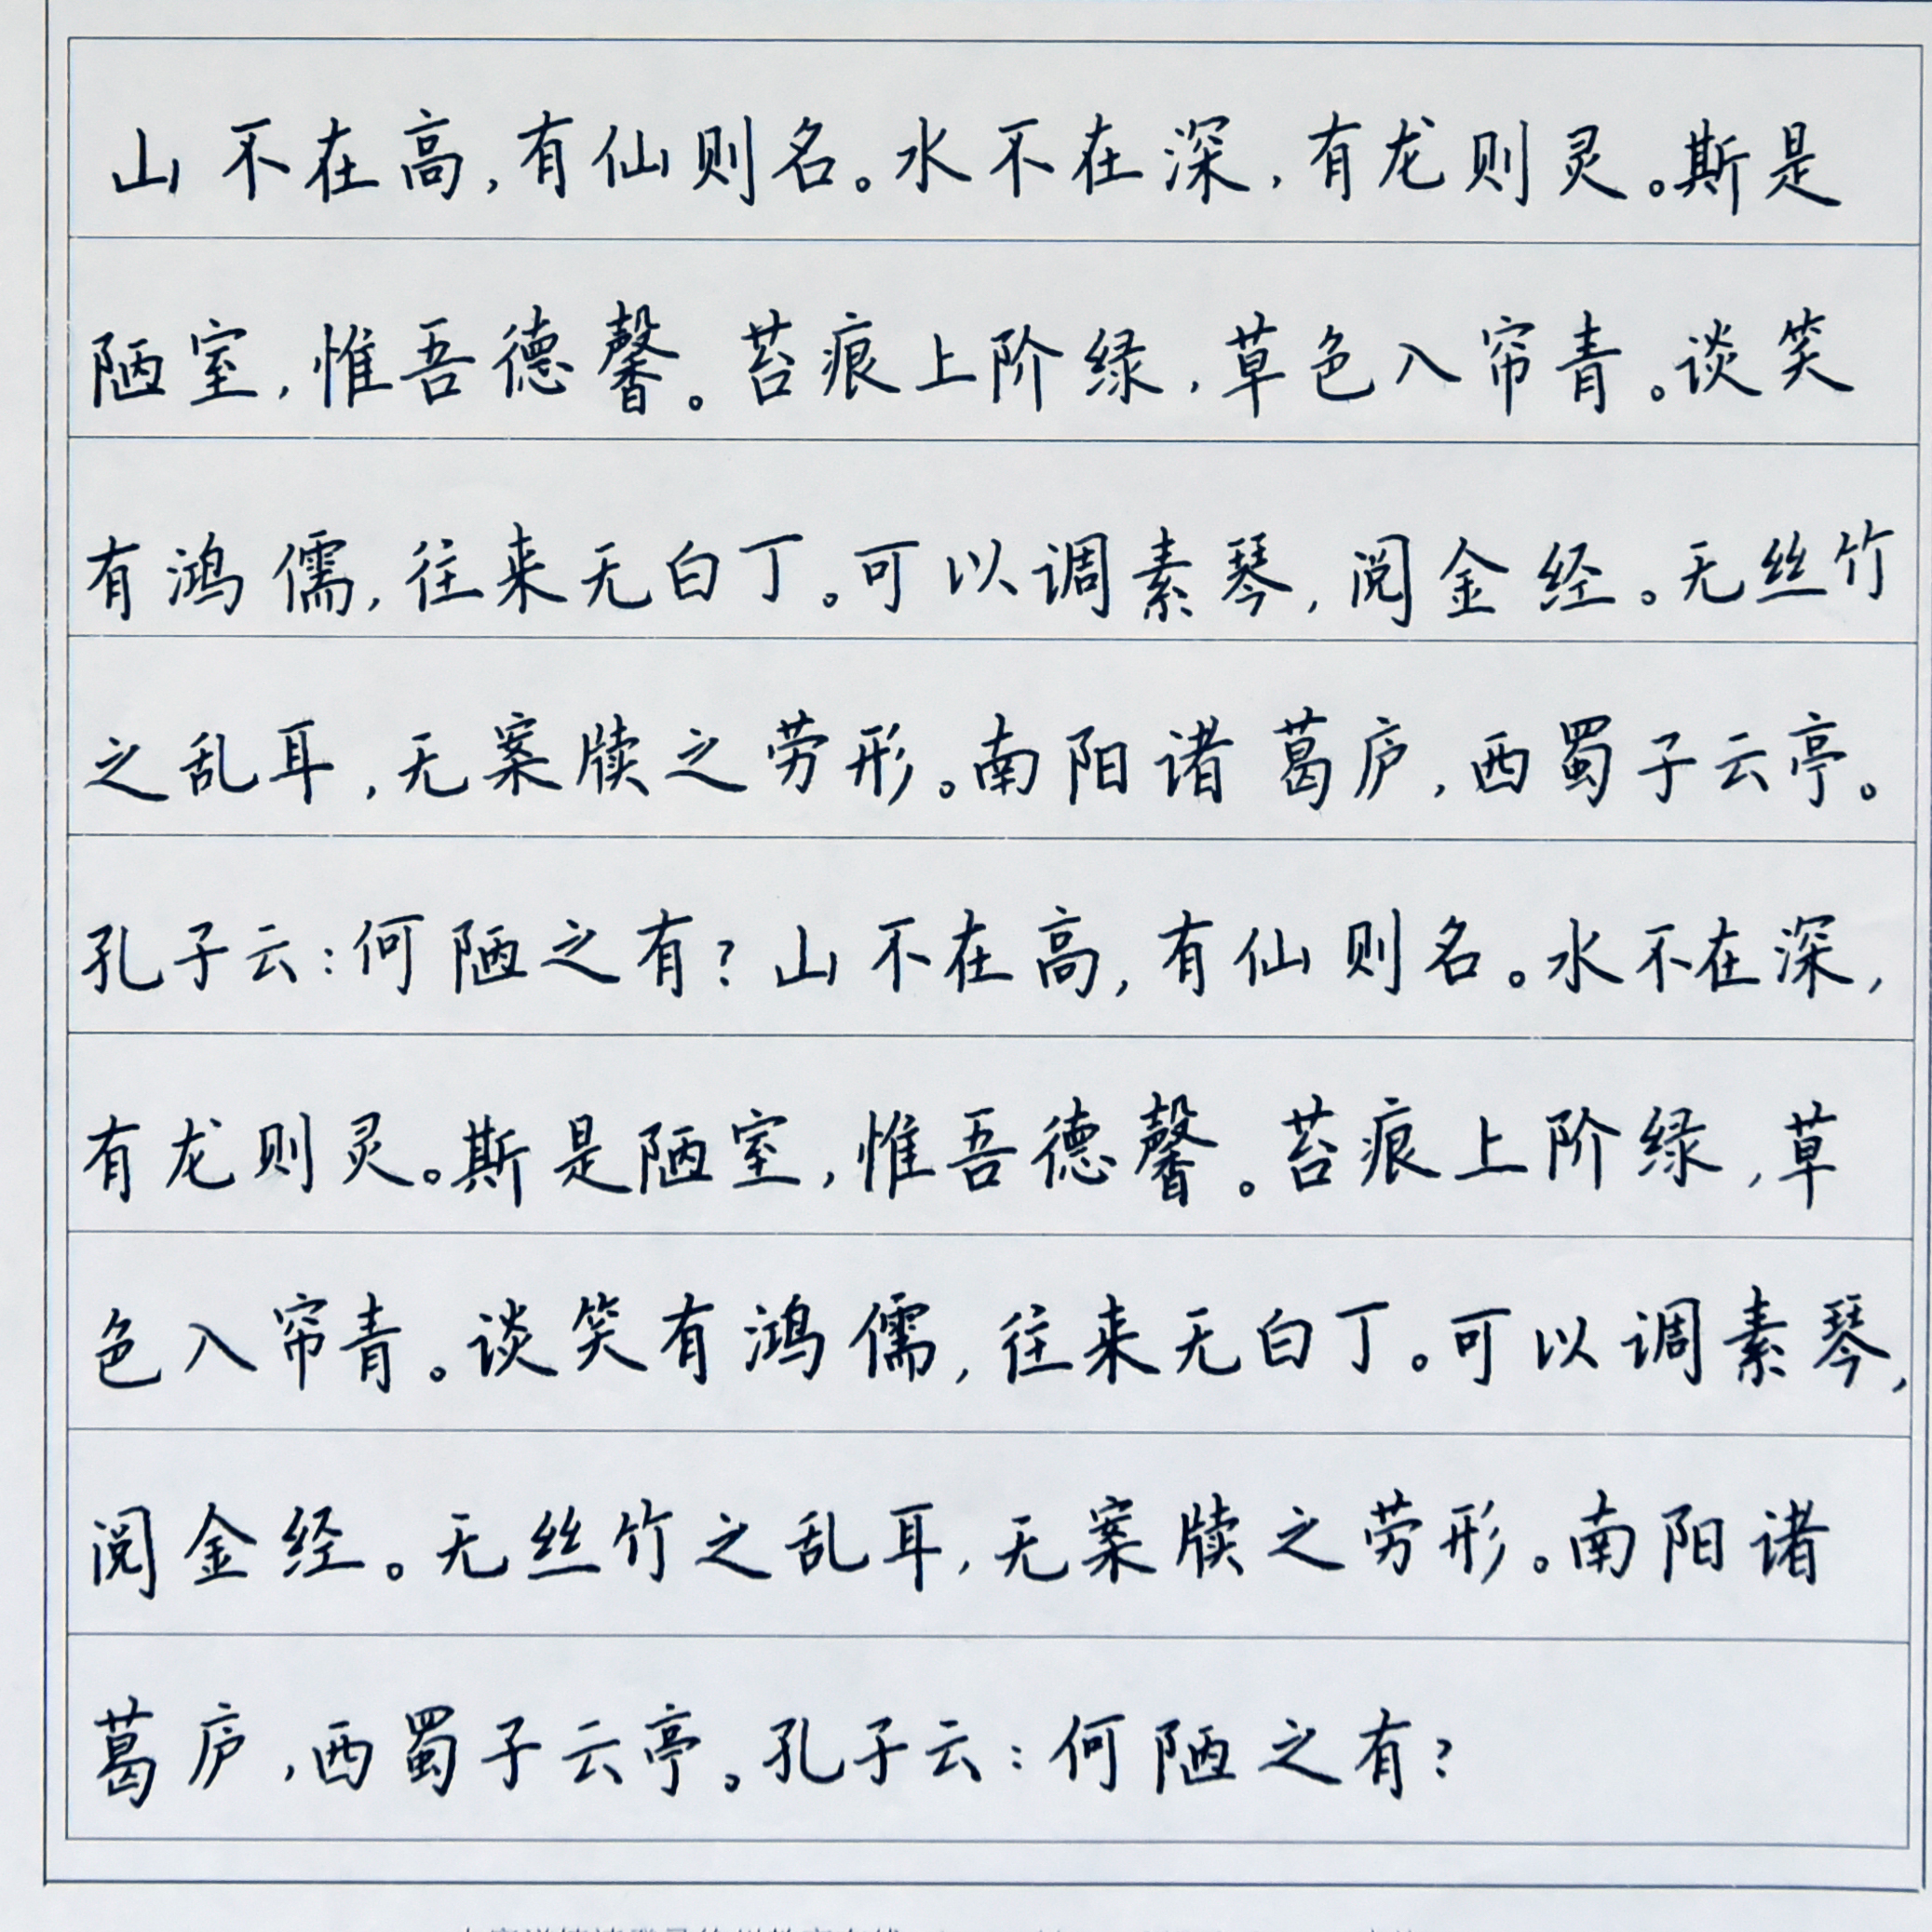 山不在高,有仙则名。水不在深,有龙则灵。斯是
陋室,惟吾德馨。苔痕上阶绿,草色入帘青。谈笑
有鸿儒,往来无白丁。可以调素琴,阅金经。无丝竹
之乱耳,无案牍之劳形。南阳诸葛庐,西蜀子云亭。
孔子云:何陋之有?山不在高,有仙则名。水不在深,
有龙则灵。斯是陋室,惟吾德馨。苔痕上阶绿,草
色入帘青。谈笑有鸿儒,往来无白丁。可以调素琴,
阅金经。无丝竹之乱耳,无案牍之劳形。南阳诸
葛庐,西蜀子云亭。孔子云:何陋之有?